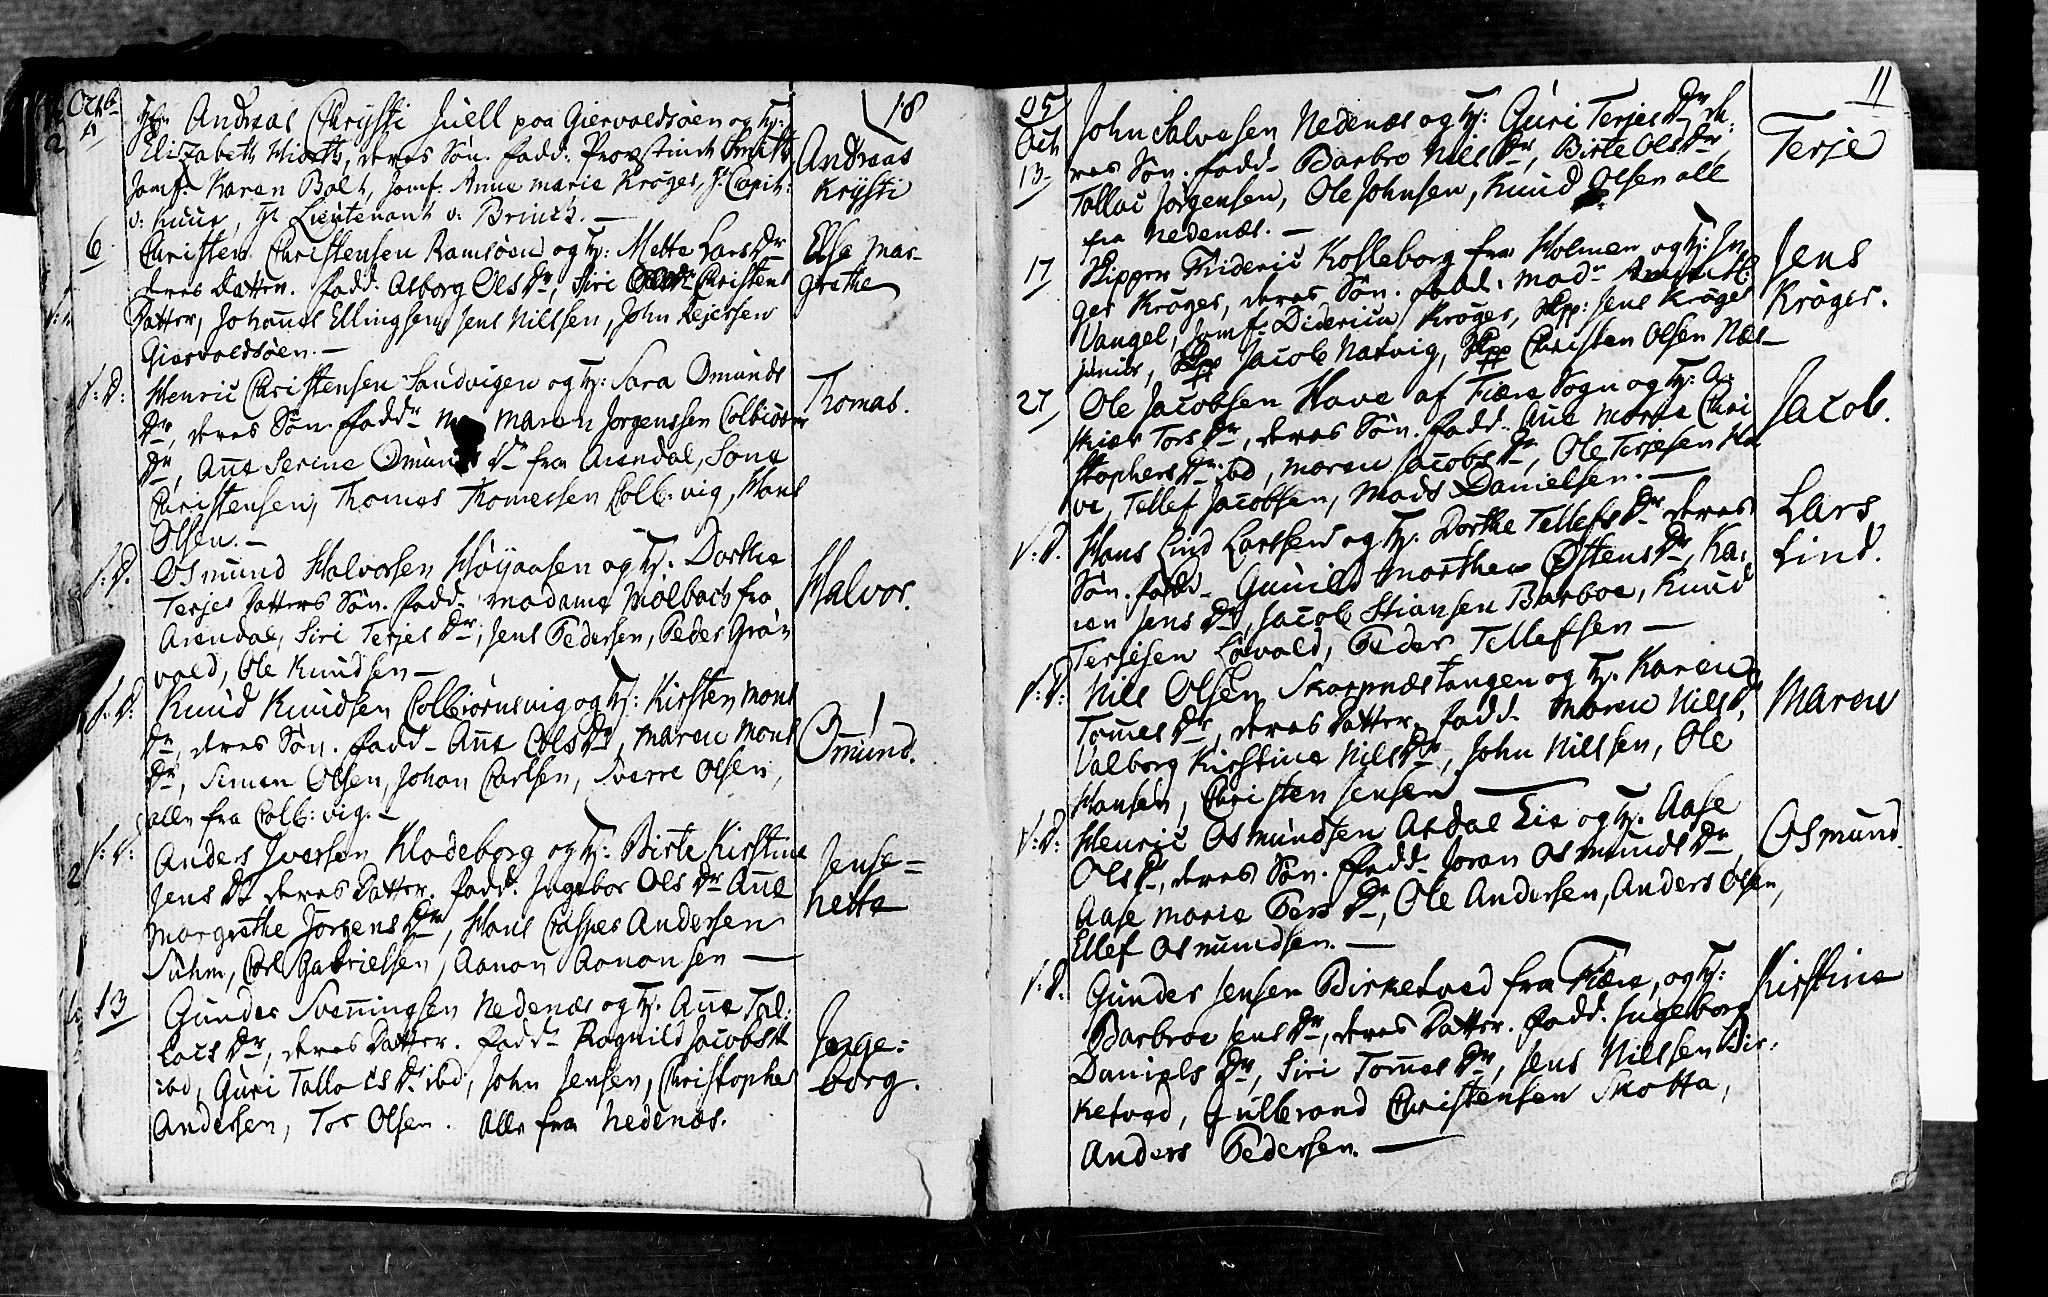 Octb
2
Hr Andreas Chrysti Juell paa Giervoldsøen og H:
Elizabeth Wiorth, deres Søn. fadd: Provstinde Smith
Jomf: Karen Bolt, Jomf: Anne Marie Krøger, Hr Capit:
v: Huus, Hr Lieutenant v: Brinck. —
18
Andreas
Krysti
6
Christen Christensen Ramsøen og H: Mette Lars Dr
deres Datter. fadd: Asborg Ols Dr, Siri Christens
Datter, Johannes Ellingsen, Jens Nilssen, John Rejersen
Giervoldsøen. —
Else Mar-
grethe
S: D:
Henric Christensen Sandvigen og H: Sara Omunds
Dr, deres Søn. fadd. Maren Jorgenssen Colbiør
Dr, Ane Serine Omunds Dr fra Arendal, Sone
Christensen, Thomas Thomessen Colb: vig, Hans
Olsen. —
Thomas.
S: D.
Osmund Halvorsen Høyaasen og H: Dorthe
Terjes Datters Søn. fadd. Madame Molbach fra
Arendal, Siri Terjes Dr, Jens Pedersen, Peder Grøn
vold, Ole Knudsen —
Halvor.
S: D:
Knud Knudsen Colbiørnsvig og H: Kirsten Mons
Dr, deres Søn. fadd. Ane Ols Dr, Maren Mons
Dr, Simon Olsen, Johan Carlsen, Sverre Olsen,
alle fra Colb: vig. —
Omund.
S: D:
Anders Iversen Klodeborg og H: Birte Kirstine
Jens Dr deres Datter. fadd. Ingebor Ols Dr Ane
Margrethe Jorgens Dr, Hans Casper Andersen
Suhm, Carl Gabrielsen, Aanon Aanonsen —
Jense-
nette
13
Gunder Svenningsen Nedenæs og H: Ane Tal:
lacs Dr, deres Datter. fadd. Ragnild Jacobs Dr
ibd, Guri Tallacs Dr ibd, John Jensen, Christopher
Andersen, Tor Olsen. alle fra Nedenæs.
Inge:
borg.
11
95
Oct
13
John Salvesen Nedenæs og H: Guri Terjes Dr de:
res Søn. fadd. Barbro Nils Dr, Birte Ols Dr,
Tallac Jørgensen, Ole Johnsen, Knud Olsen alle
fra Nedenæs. —
Terje
17
Skipper Frideric Kolleborg fra Holmen og H: In
ger Krøger, deres Søn. fadd. Mad.
Vangel, Jomf: Diderica Krøger, Skpp: Jens Krøger
junior, Skpp Jacob Natvig, Skpp Christen Olsen Næs —
Jens
Krøger.
27
Ole Jacobsen Have af Fiære Sogn og H: A:
skier Tors Dr, deres Søn. fadd. Ane Marte Chri
stophers Dr ibd, Maren Jacobs Dr, Ole Terjesen Ha
ve, Tellef Jacobsen, Mads Danielsen. —
Jacob.
S: D.
Hans Lind Larssen og H: Dorthe Tellefs Dr deres
Søn. fadd. Gunild Marthea Østens Dr, Ka:
ren Jens Dr, Jacob Stiansen Barboe, Knud
Terjesen Løvold, Peder Tellefsen —
Lars
Lind.
S: D:
Nils Olsen Skarpnæstangen og H: Karen
Tomes Dr, deres Datter. fadd. Maren Nils Dr,
Valborg Kirstine Nils Dr, John Nilssen, Ole
Hansen, Christen Jensen —
Maren
S: D:
Henric Osmundsen Asdal Eie og H: Aase
Ols Dr, deres Søn. fadd. Joran Osmunds Dr,
Aase Marie Pers Dr, Ole Andersen, Anders Olsen,
Ellef Osmundsen. —
Osmund.
S: D.
Gunder Jensen Birketved fra Fiære, og H:
Barbroe Jens Dr, deres Datter. fadd. Ingeborg
Daniels Dr, Siri Tomes Dr, Jens Nilssen Bir:
ketved, Gulbrand Christensen Skotta,
Anders Pedersen. —
Kirstine